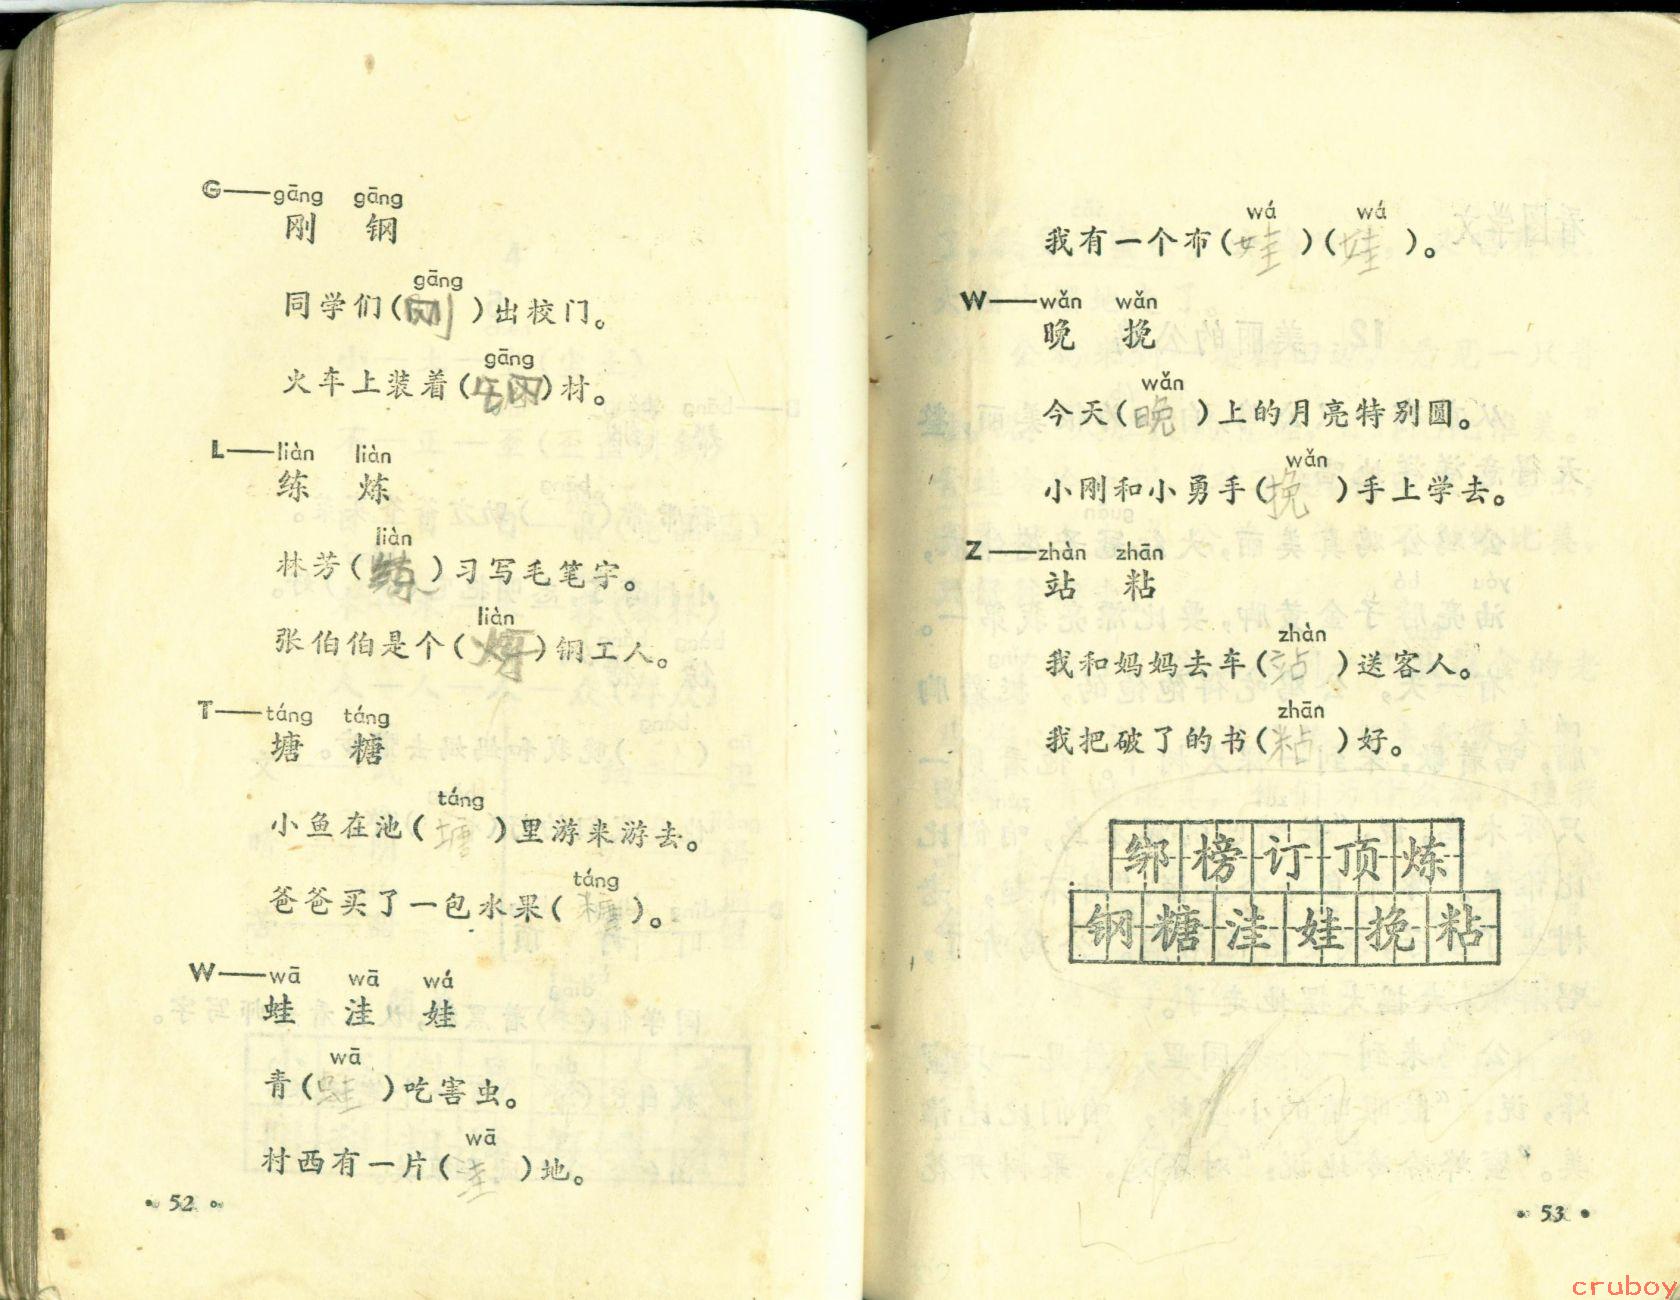 G——gāng gāng
刚 钢
gāng
同学们(刚)出校门。
gāng
火车上装着(钢)材。
L——liàn liàn
练 炼
liàn
林芳(练)习写毛笔字。
liàn
张伯伯是个(炼)钢工人。
T——táng táng
塘 糖
táng
小鱼在池(塘)里游来游去。
táng
爸爸买了一包水果(糖)。
W——wā wā wá
蛙 洼 娃
wā
青(蛙)吃害虫。
wā
村西有一片(洼)地。
• 52 •
wá wá
我有一个布(娃)(娃)。
W——wǎn wǎn
晚 挽
wǎn
今天(晚)上的月亮特别圆。
wǎn
小刚和小勇手(挽)手上学去。
Z——zhàn zhān
站 粘
zhàn
我和妈妈去车(站)送客人。
zhān
我把破了的书(粘)好。
绑榜订顶炼
钢糖洼娃挽粘
• 53 •
cruboy